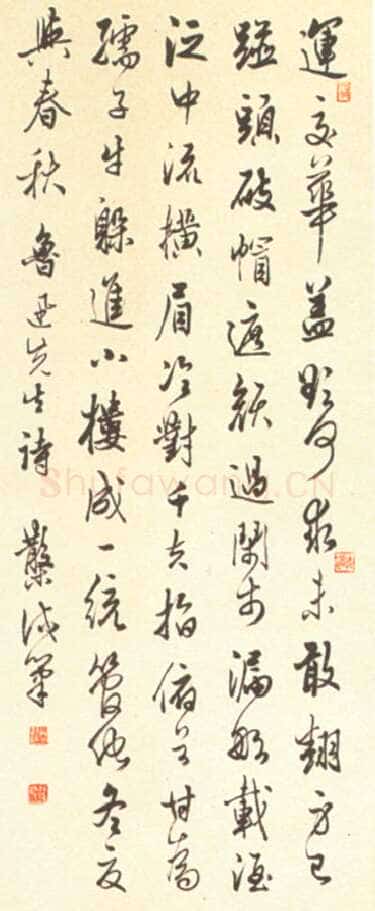 運交華蓋欲何求未敢翻身已
踫頭破帽遮顏過鬧市漏船載酒
泛中流橫眉冷對千夫指俯首甘為
孺子牛躲進小樓成一統管他冬夏
與春秋 魯迅先生詩
Shufawang.CN